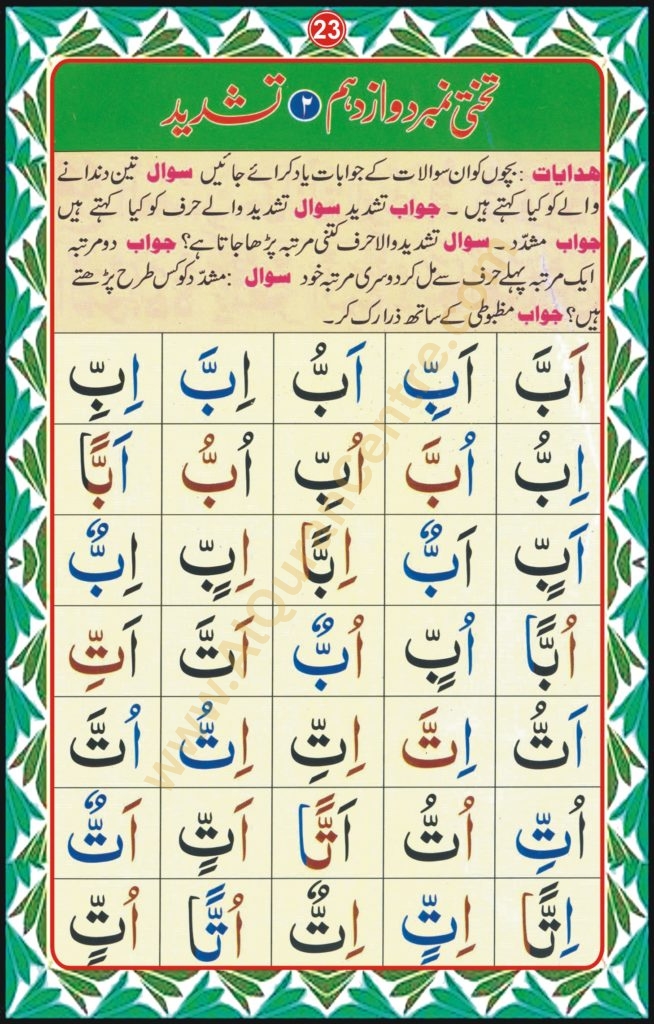 23
تختی نمبر دوازدہم ۲ تشدید
ھدایات : بچوں کو ان سوالات کے جوابات یاد کرائے جائیں سوال تین دندانے
والے کو کیا کہتے ہیں ۔ جواب تشدید سوال تشدید والے حرف کو کیا کہتے ہیں
جواب مشدّد ۔ سوال تشدید والا حرف کتنی مرتبہ پڑھا جاتا ہے؟ جواب دو مرتبہ
ایک مرتبہ پہلے حرف سے مل کر دوسری مرتبہ خود سوال : مشدّد کو کس طرح پڑھتے
ہیں؟ جواب مظبوطی کے ساتھ ذرا رک کر۔
اَبَّ اَبِّ اَبُّ اِبَّ اِبِّ
اِبُّ اُبَّ اُبِّ اُبُّ اَبًّا
اَبٍّ اَبٌّ اِبًّا اِبٍّ اِبٌّ
اُبًّا اُبٍّ اُبٌّ اَتَّ اَتِّ
اَتُّ اِتَّ اِتِّ اِتُّ اُتَّ
اُتِّ اُتُّ اَتًّا اَتٍّ اَتٌّ
اِتًّا اِتٍّ اِتٌّ اُتًّا اُتٍّ
www.AlQuranCentre.com